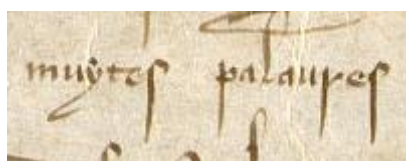 muytes palaures